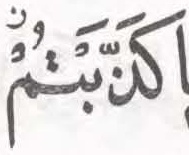 وْن
اكَذَّبْتُمْ